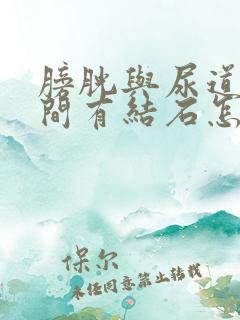 膀胱與尿道
間有結石怎
保尔
未经同意禁止转载